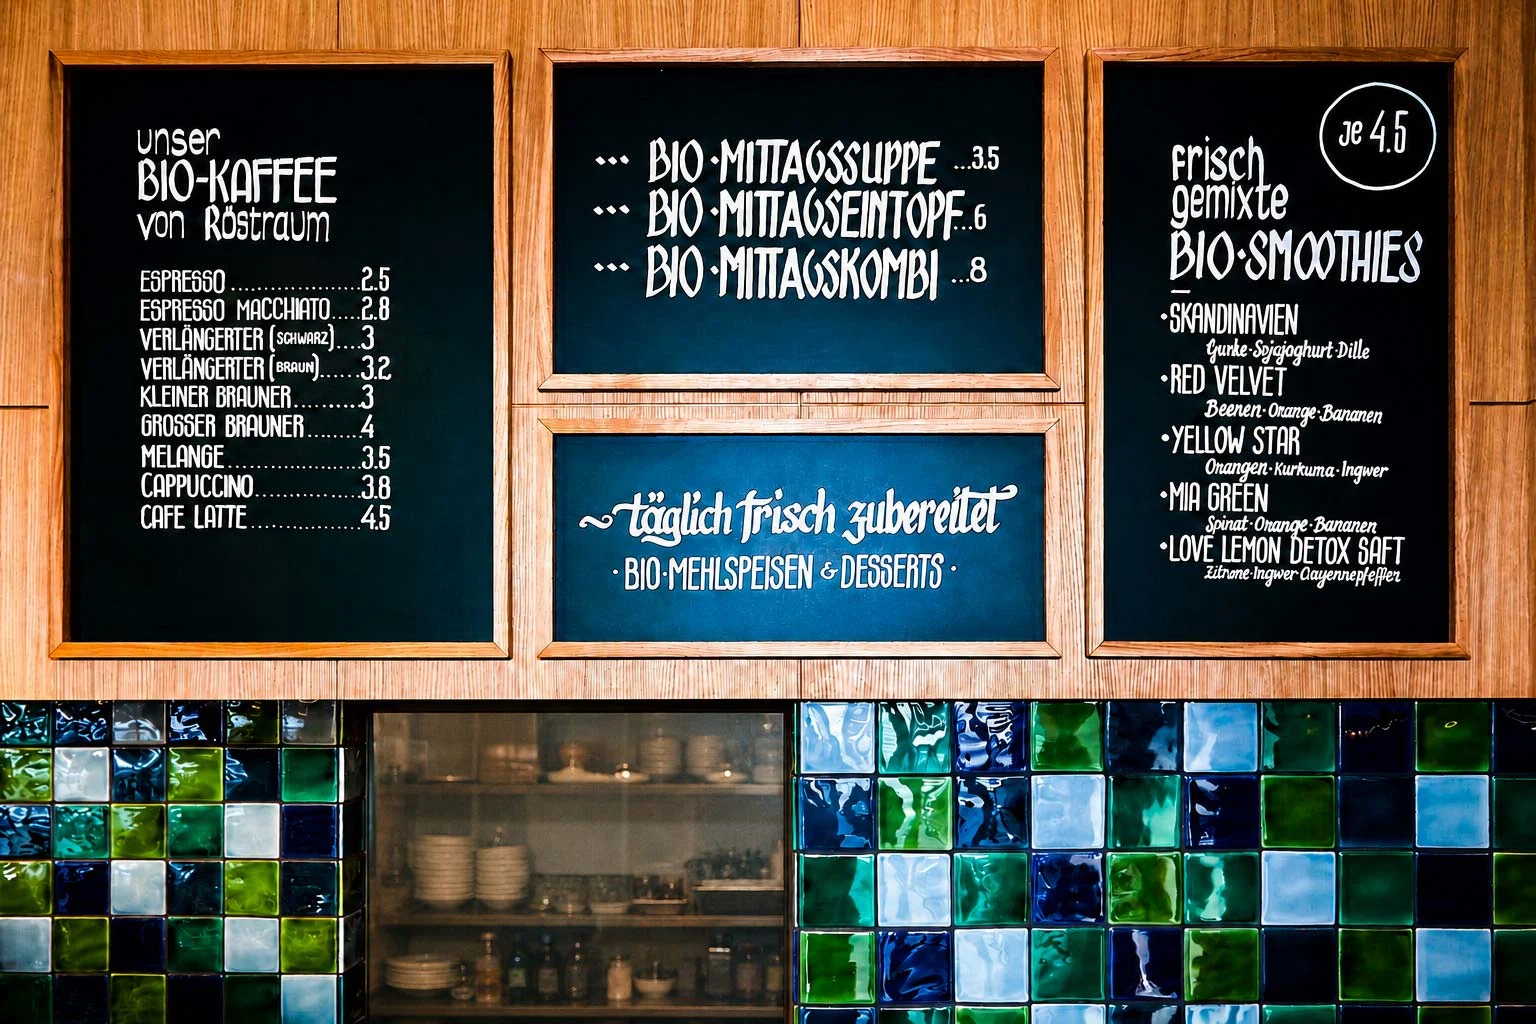 unser
BIO-KAFFEE
von Röstraum
ESPRESSO ...................2.5
ESPRESSO MACCHIATO.....2.8
VERLÄNGERTER (SCHWARZ)....3
VERLÄNGERTER (BRAUN).......3.2
KLEINER BRAUNER...........3
GROSSER BRAUNER........4
MELANGE....................3.5
CAPPUCCINO................3.8
CAFE LATTE.................4.5
••• BIO•MITTAGSSUPPE ...3.5
••• BIO•MITTAGSEINTOPF...6
••• BIO•MITTAGSKOMBI ...8
~täglich frisch zubereitet
•BIO•MEHLSPEISEN & DESSERTS•
je 4.5
frisch
gemixte
BIO•SMOOTHIES
•SKANDINAVIEN
Gurke•Sojajoghurt•Dille
•RED VELVET
Beeren•Orange•Bananen
•YELLOW STAR
Orangen•Kurkuma•Ingwer
•MIA GREEN
Spinat•Orange•Bananen
•LOVE LEMON DETOX SAFT
Zitrone•Ingwer•Cayennepfeffer